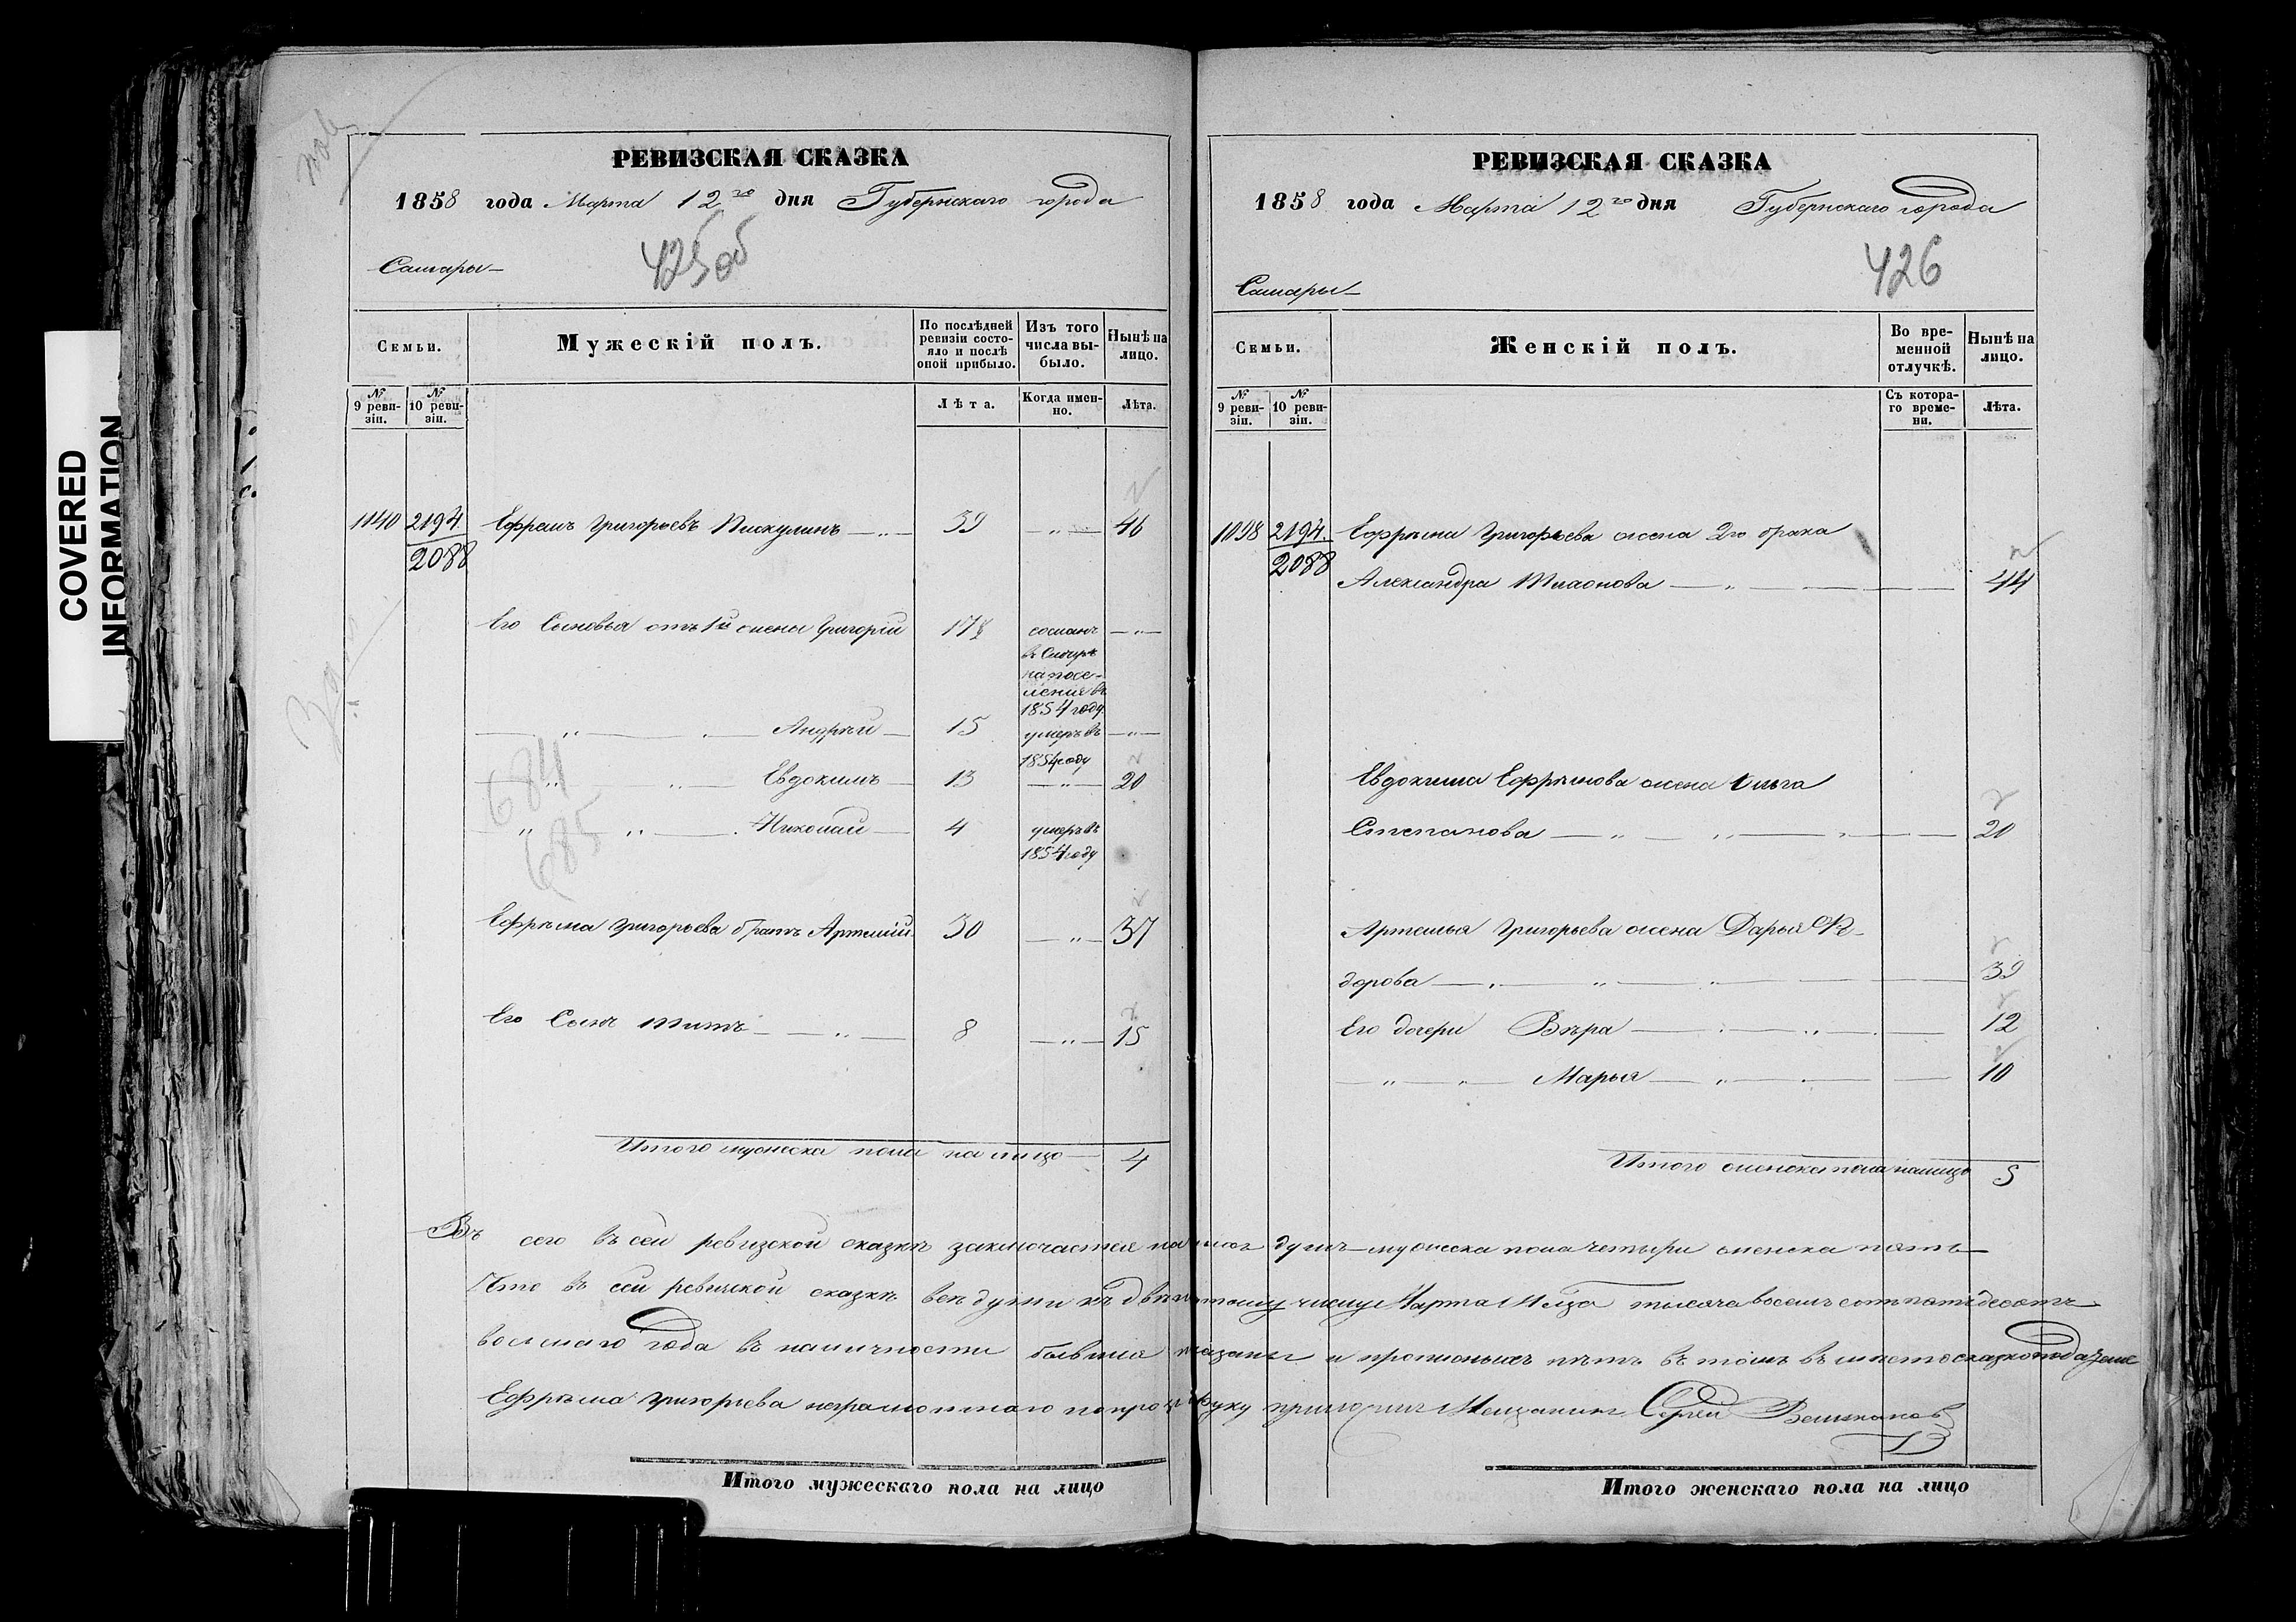 РЕВИЗСКАЯ СКАЗКА
1858 года Марта 12го дня Губернскаго города
425об
Самары
Семьи.
Мужескій полъ.
По послѣдней ревизіи состояло и послѣ оной прибыло.
Изъ того числа выбыло.
Нынѣ на лицо.
№ 9 ревизіи.
№ 10 ревизіи.
Лѣта.
Когда именно.
Лѣта.
1140 2194 Ефремъ Григорьевъ Пискулинъ 39 — 46
2088
Его Сыновья отъ 1й жены Григорій 17½ сосланъ
въ Сибирь
на посе-
леніе въ
1854 году
Андрѣй 15 умеръ въ
1854 году
Евдокимъ 13 — 20
Николай 4 умеръ въ
1854 году
684
685
Ефрѣма Григорьева братъ Артемій 30 — 37
Его Сынъ Титъ 8 — 15
Итого мужеска пола на лицо 4
РЕВИЗСКАЯ СКАЗКА
1858 года Марта 12го дня Губернскаго города
426
Самары
Семьи.
Женскій полъ.
Во временной отлучкѣ.
Нынѣ на лицо.
№ 9 ревизіи.
№ 10 ревизіи.
Съ котораго времени.
Лѣта.
1098 2194. Ефрѣма Григорьева жена 2го брака
2088
Александра 44
Евдокима Ефрѣмова жена Ольга
Степанова 20
Артемья Григорьева жена Дарья Ѳе-
дорова 39
Его дочери Вѣра 12
Марья 10
Итого женска пола налицо 5
Въ сего въ сей ревизской сказкѣ заключается на лицо душъ мужеска пола четыри женска пять
Что въ сей ревизской сказкѣ всѣ души къ двенатому числу Марта М-ца тысяча восемь сотъ пятьдесятъ
восьмаго года въ наличности бывшіе показаны и прописныхъ нѣтъ въ томъ въ мѣсто сказкоподателя
Ефрѣма Григорьева неграмотнаго по прозбѣ руку приложилъ Мещанинъ Сергей
Итого мужескаго пола на лицо
Итого женскаго пола на лицо
COVERED
INFORMATION